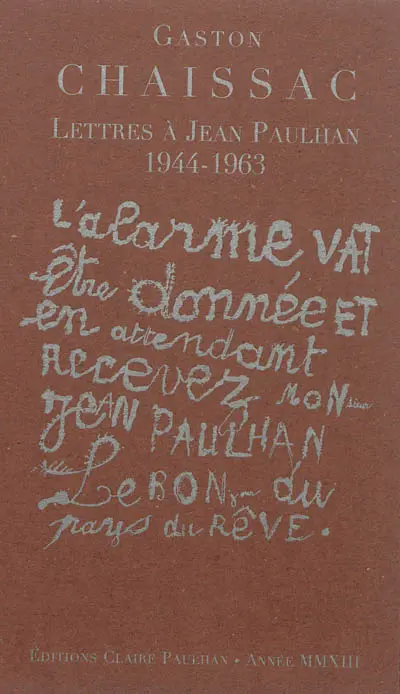 GASTON
CHAISSAC
LETTRES À JEAN PAULHAN
1944-1963
L'alarme VAT
être donnée ET
en attendant
recevez MONsieur
JEAN PAULHAN
Le BONjour du
pays du RÊVE.
ÉDITIONS CLAIRE PAULHAN • ANNÉE MMXIII